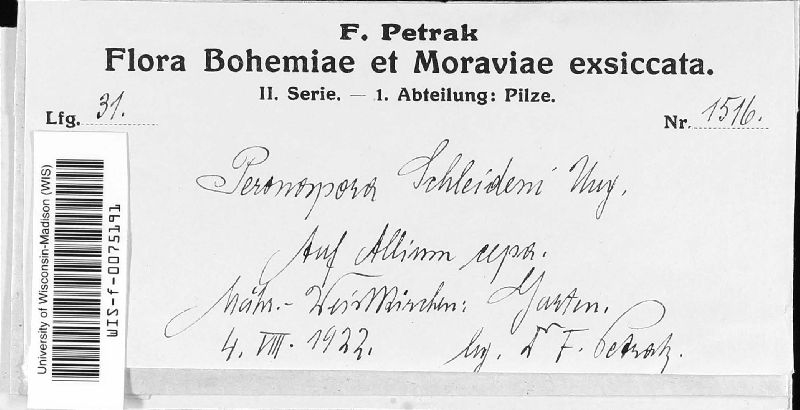 F. Petrak
Flora Bohemiae et Moraviae exsiccata.
II. Serie. — 1. Abteilung: Pilze.
Lfg. 31.
Nr. 1516.
Peronospora Schleideni Ung.
Auf Allium cepa.
Mähr.-Weisskirchen: Garten.
4. VIII. 1922.
leg. Dr F. Petrak.
University of Wisconsin-Madison (WIS)
WIS-f-0075191